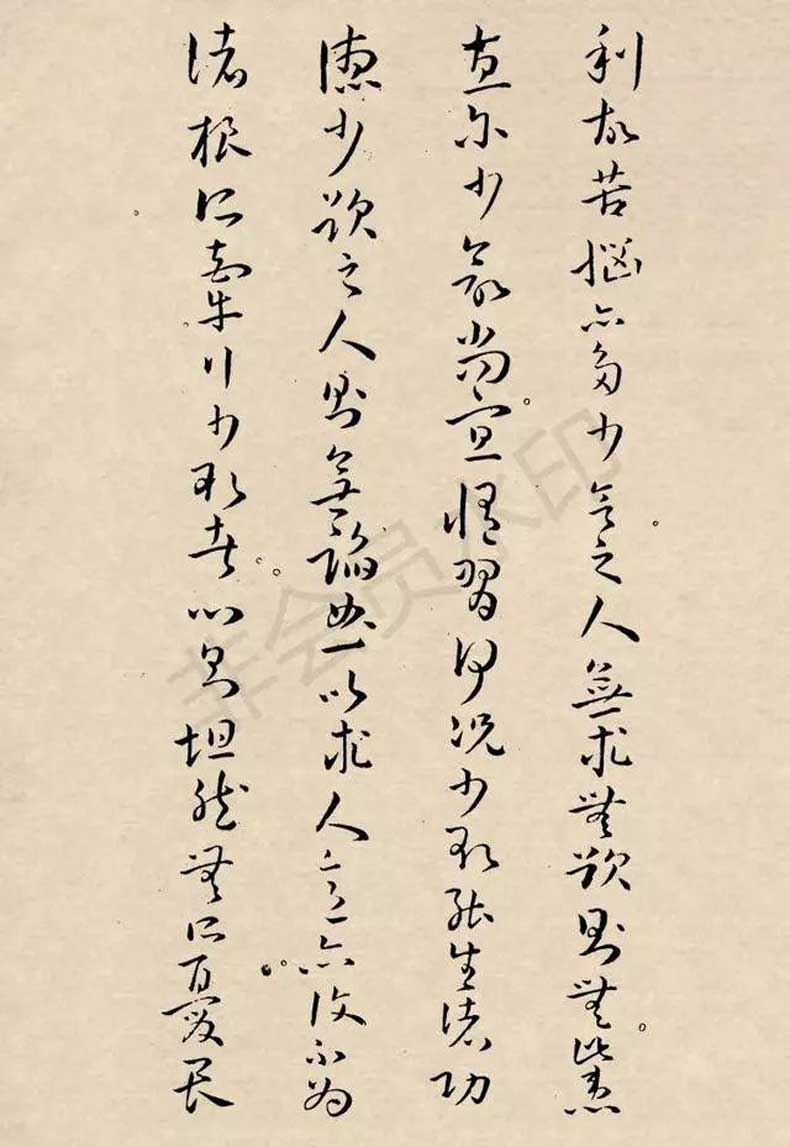 利故苦惱亦多少欲之人無求無欲則無此患
直尔少欲尚宜脩習何況少欲能生諸功
德少欲之人則無諂曲以求人意亦復不為
諸根所牽行少欲者心則坦然無所憂畏
非会员水印